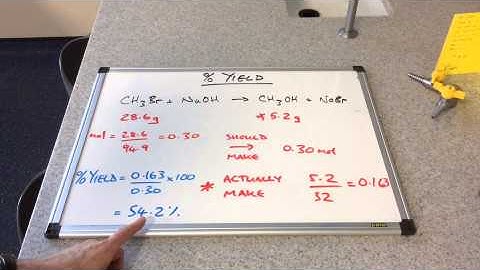 % YIELD
CH₃Br + NaOH → CH₃OH + NaBr
28.6g * 5.2g
mol = 28.6/94.9 = 0.30 SHOULD → MAKE 0.30 mol
% YIELD = 0.163 x 100 / 0.30 * ACTUALLY MAKE 5.2/32 = 0.163
= 54.2%